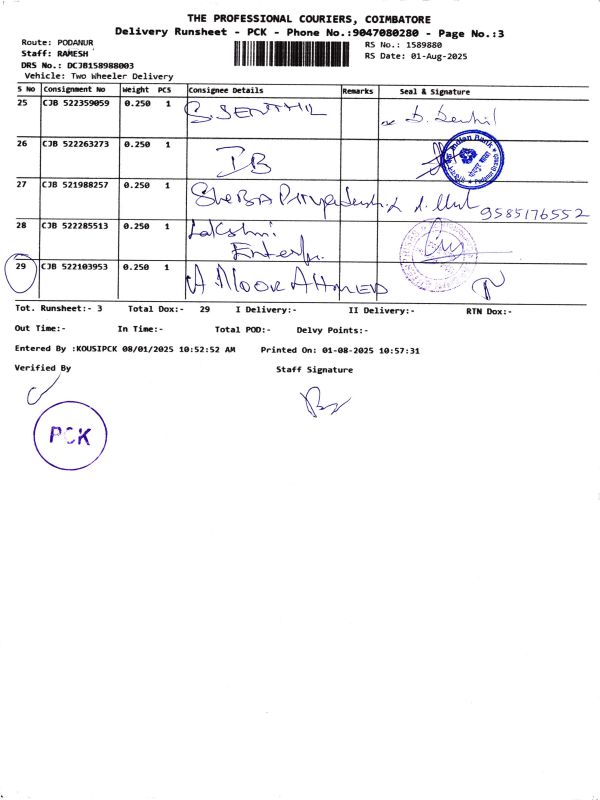 THE PROFESSIONAL COURIERS, COIMBATORE
Delivery Runsheet - PCK - Phone No.:9047080280 - Page No.:3
Route: PODANUR
RS No.: 1589880
Staff: RAMESH
RS Date: 01-Aug-2025
DRS No.: DCJB158988003
Vehicle: Two Wheeler Delivery
S No Consignment No Weight PCS Consignee Details Remarks Seal & Signature
25 CJB 522359059 0.250 1 S. SENTHIL
26 CJB 522263273 0.250 1 IB Indian Bank
27 CJB 521988257 0.250 1 SheBA 9585176552
28 CJB 522285513 0.250 1 Lakshmi
Enterp.
29 CJB 522103953 0.250 1 A NOOR AHMED
Tot. Runsheet:- 3 Total Dox:- 29 I Delivery:- II Delivery:- RTN Dox:-
Out Time:- In Time:- Total POD:- Delvy Points:-
Entered By :KOUSIPCK 08/01/2025 10:52:52 AM Printed On: 01-08-2025 10:57:31
Verified By Staff Signature
PCK